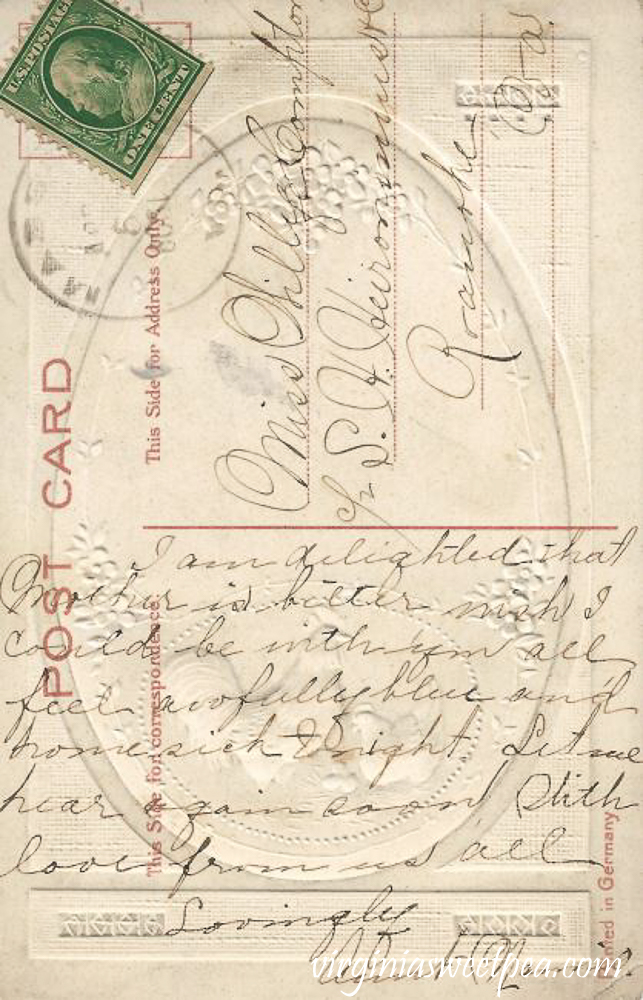 U.S. POSTAGE
ONE CENT
POST CARD
This Side for Address Only.
Miss Willye Compton
c/o S. H. Heironimus
Roanoke
Va.
This Side for correspondence.
I am delighted that
Mother is better wish I
could be with you all
feel awfully blue and
homesick tonight. Let me
hear again soon. With
love from us all
Lovingly
Aunt
in Germany
virginiasweetpea.com